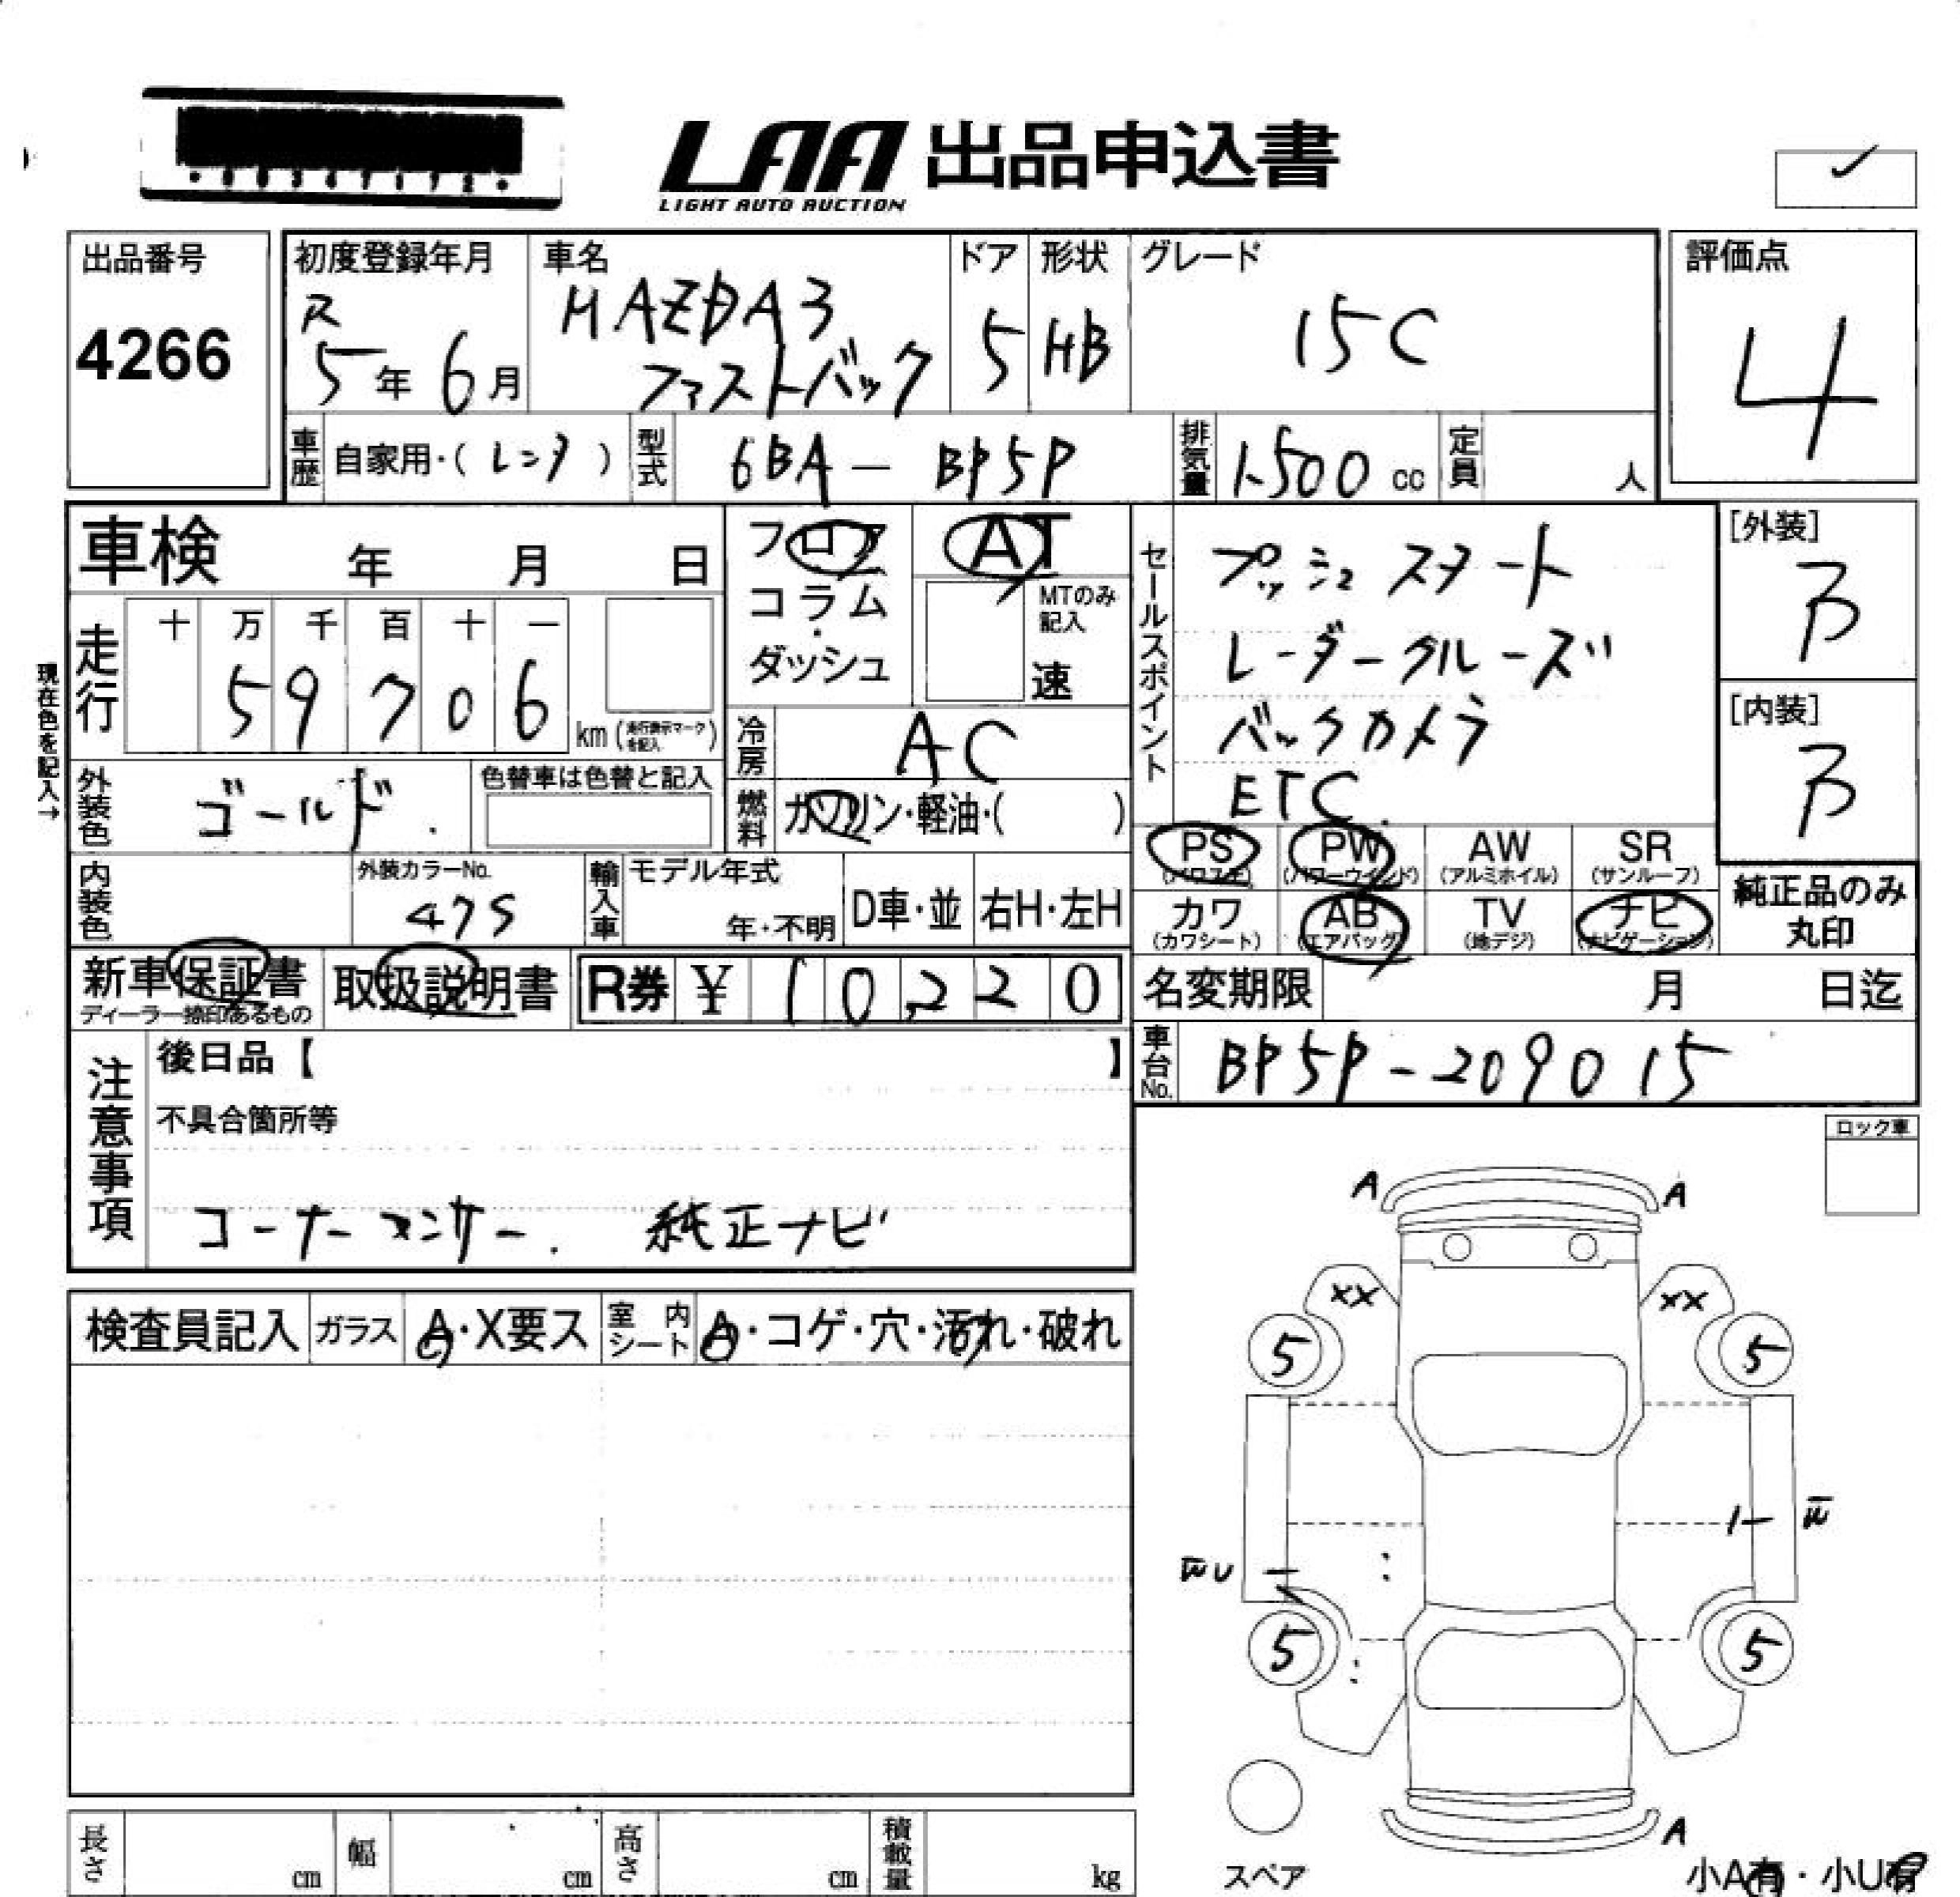 LAA 出品申込書
LIGHT AUTO AUCTION
出品番号
4266
初度登録年月
R
5年 6月
車名
MAZDA3
ファストバック
ドア
5
形状
HB
グレード
15C
評価点
4
車歴 自家用・( レンタ )
型式 6BA - BP5P
排気量 1500 cc
定員 人
車検 年 月 日
走行 十 万 千 百 十 一
5 9 7 0 6
km (走行表示マークを記入)
現在色を記入→
外装色 ゴールド
色替車は色替と記入
内装色
外装カラーNo.
47S
フロア
コラム
・
ダッシュ
AT
MTのみ
記入
速
冷房 AC
燃料 ガソリン・軽油・( )
輸入車 モデル年式
年・不明
D車・並
右H・左H
セールスポイント
プッシュスタート
レーダークルーズ
バックカメラ
ETC.
[外装]
B
[内装]
B
PS
(パワステ)
PW
(パワーウインド)
AW
(アルミホイル)
SR
(サンルーフ)
カワ
(カワシート)
AB
(エアバッグ)
TV
(地デジ)
ナビ
(ナビゲーション)
純正品のみ
丸印
新車保証書
ディーラー捺印あるもの
取扱説明書
R券 ¥ 1 0 2 2 0
名変期限 月 日迄
車台No. BP5P-209015
注意事項
後日品【 】
不具合箇所等
コーナーセンサー. 純正ナビ
検査員記入 ガラス A・X要ス 室内シート A・コゲ・穴・汚れ・破れ
ロック車
A A
XX XX
5 5
5 5
A
スペア
小A有・小U有
長さ cm 幅 cm 高さ cm 積載量 kg